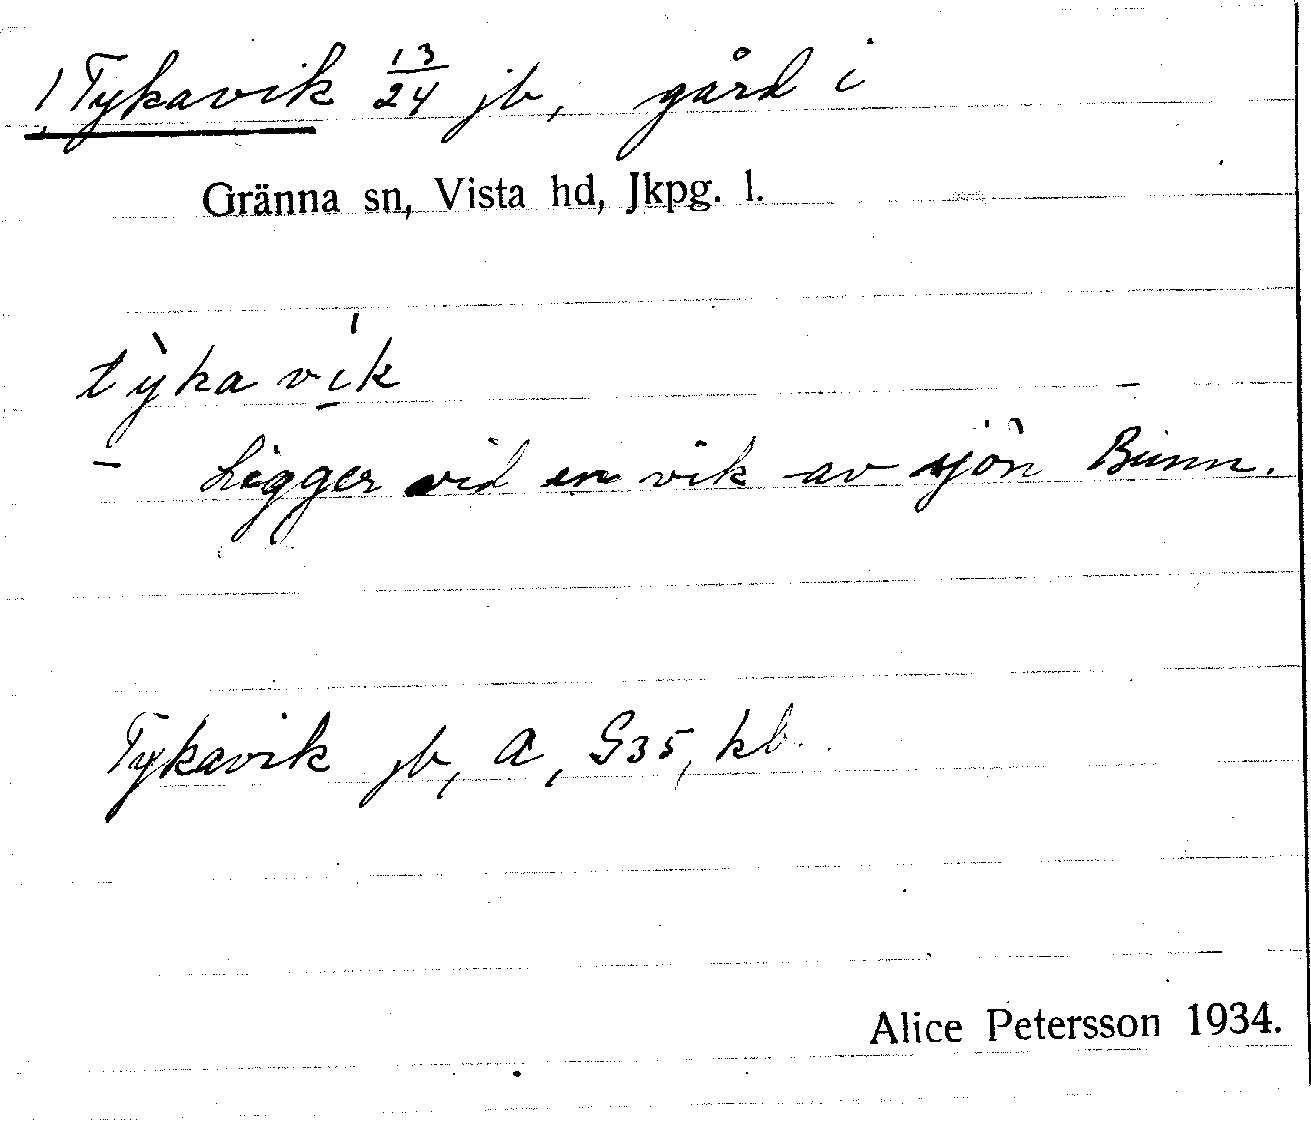 1 Tykavik 13/24 jb, gård i
Gränna sn, Vista hd, Jkpg. l.
tỳkavík
Ligger vid en vik av sjön Bunn.
Tykavik jb, A, G35, kb.
Alice Petersson 1934.